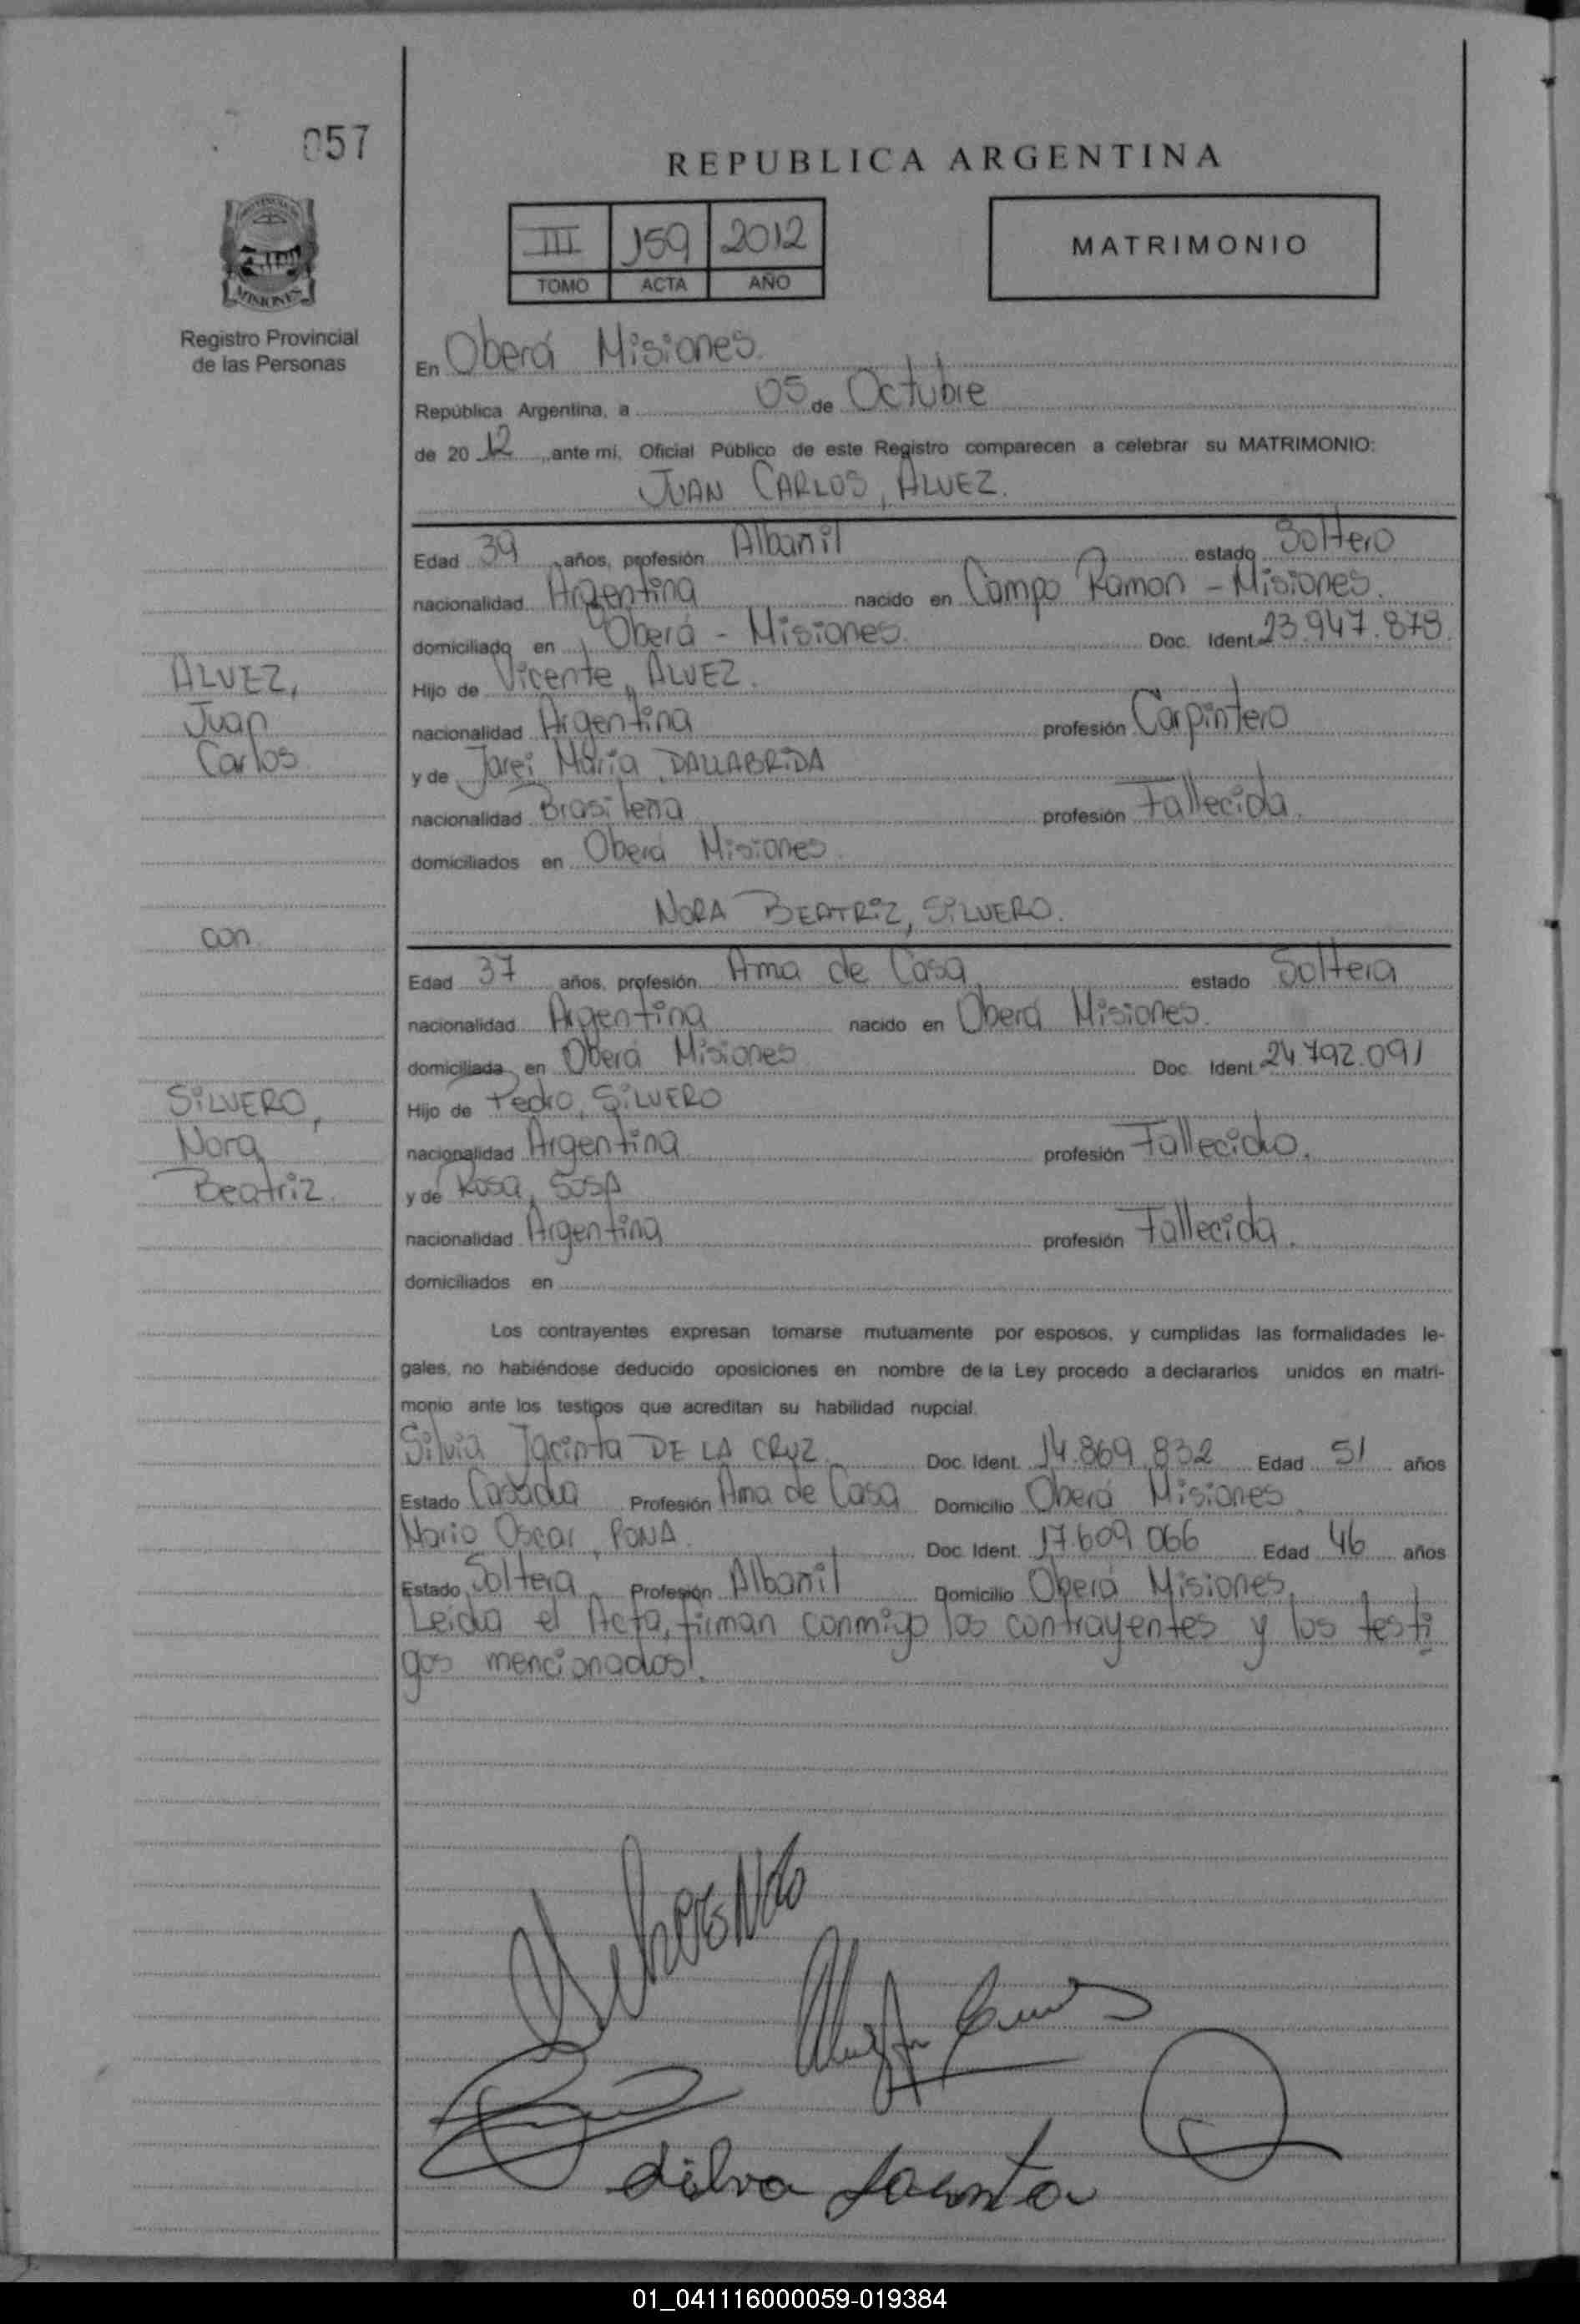 057
REPUBLICA ARGENTINA
III 159 2012
TOMO ACTA AÑO
MATRIMONIO
PROVINCIA DE
MISIONES
Registro Provincial
de las Personas
En Oberá Misiones.
República Argentina, a 05 de Octubre
de 20 12 ,ante mi, Oficial Público de este Registro comparecen a celebrar su MATRIMONIO:
JUAN CARLOS, ALVEZ.
Edad 39 ,años, profesión Albañil estado Soltero
nacionalidad Argentina nacido en Campo Ramon - Misiones.
domiciliado en Oberá - Misiones. Doc. Ident. 23.947.878.
Hijo de Vicente, ALVEZ.
nacionalidad Argentina profesión Carpintero
y de Maria, DALLABRIDA
nacionalidad Brasileña profesión Fallecida.
domiciliados en Oberá Misiones.
ALVEZ,
Juan
Carlos.
NORA BEATRIZ, SILVERO.
con
Edad 37 años, profesión Ama de Casa estado Soltera
nacionalidad Argentina nacido en Oberá Misiones.
domiciliada en Oberá Misiones Doc. Ident. 24.792.091
Hijo de Pedro, SILVERO
nacionalidad Argentina profesión Fallecido.
y de Rosa, SOSA
nacionalidad Argentina profesión Fallecida.
domiciliados en
SILVERO,
Nora
Beatriz.
Los contrayentes expresan tomarse mutuamente por esposos, y cumplidas las formalidades le-
gales, no habiéndose deducido oposiciones en nombre de la Ley procedo a declararlos unidos en matri-
monio ante los testigos que acreditan su habilidad nupcial.
Silvia Jacinta DE LA CRUZ. Doc. Ident. 14.869.832 Edad 51 años
Estado Casada Profesión Ama de Casa Domicilio Oberá Misiones
Mario Oscar, Doc. Ident. 17.609.066 Edad 46 años
Estado Soltera Profesión Albañil Domicilio Oberá Misiones.
Leida el Acta, firman conmigo los contrayentes y los testi
gos mencionados.
01_041116000059-019384